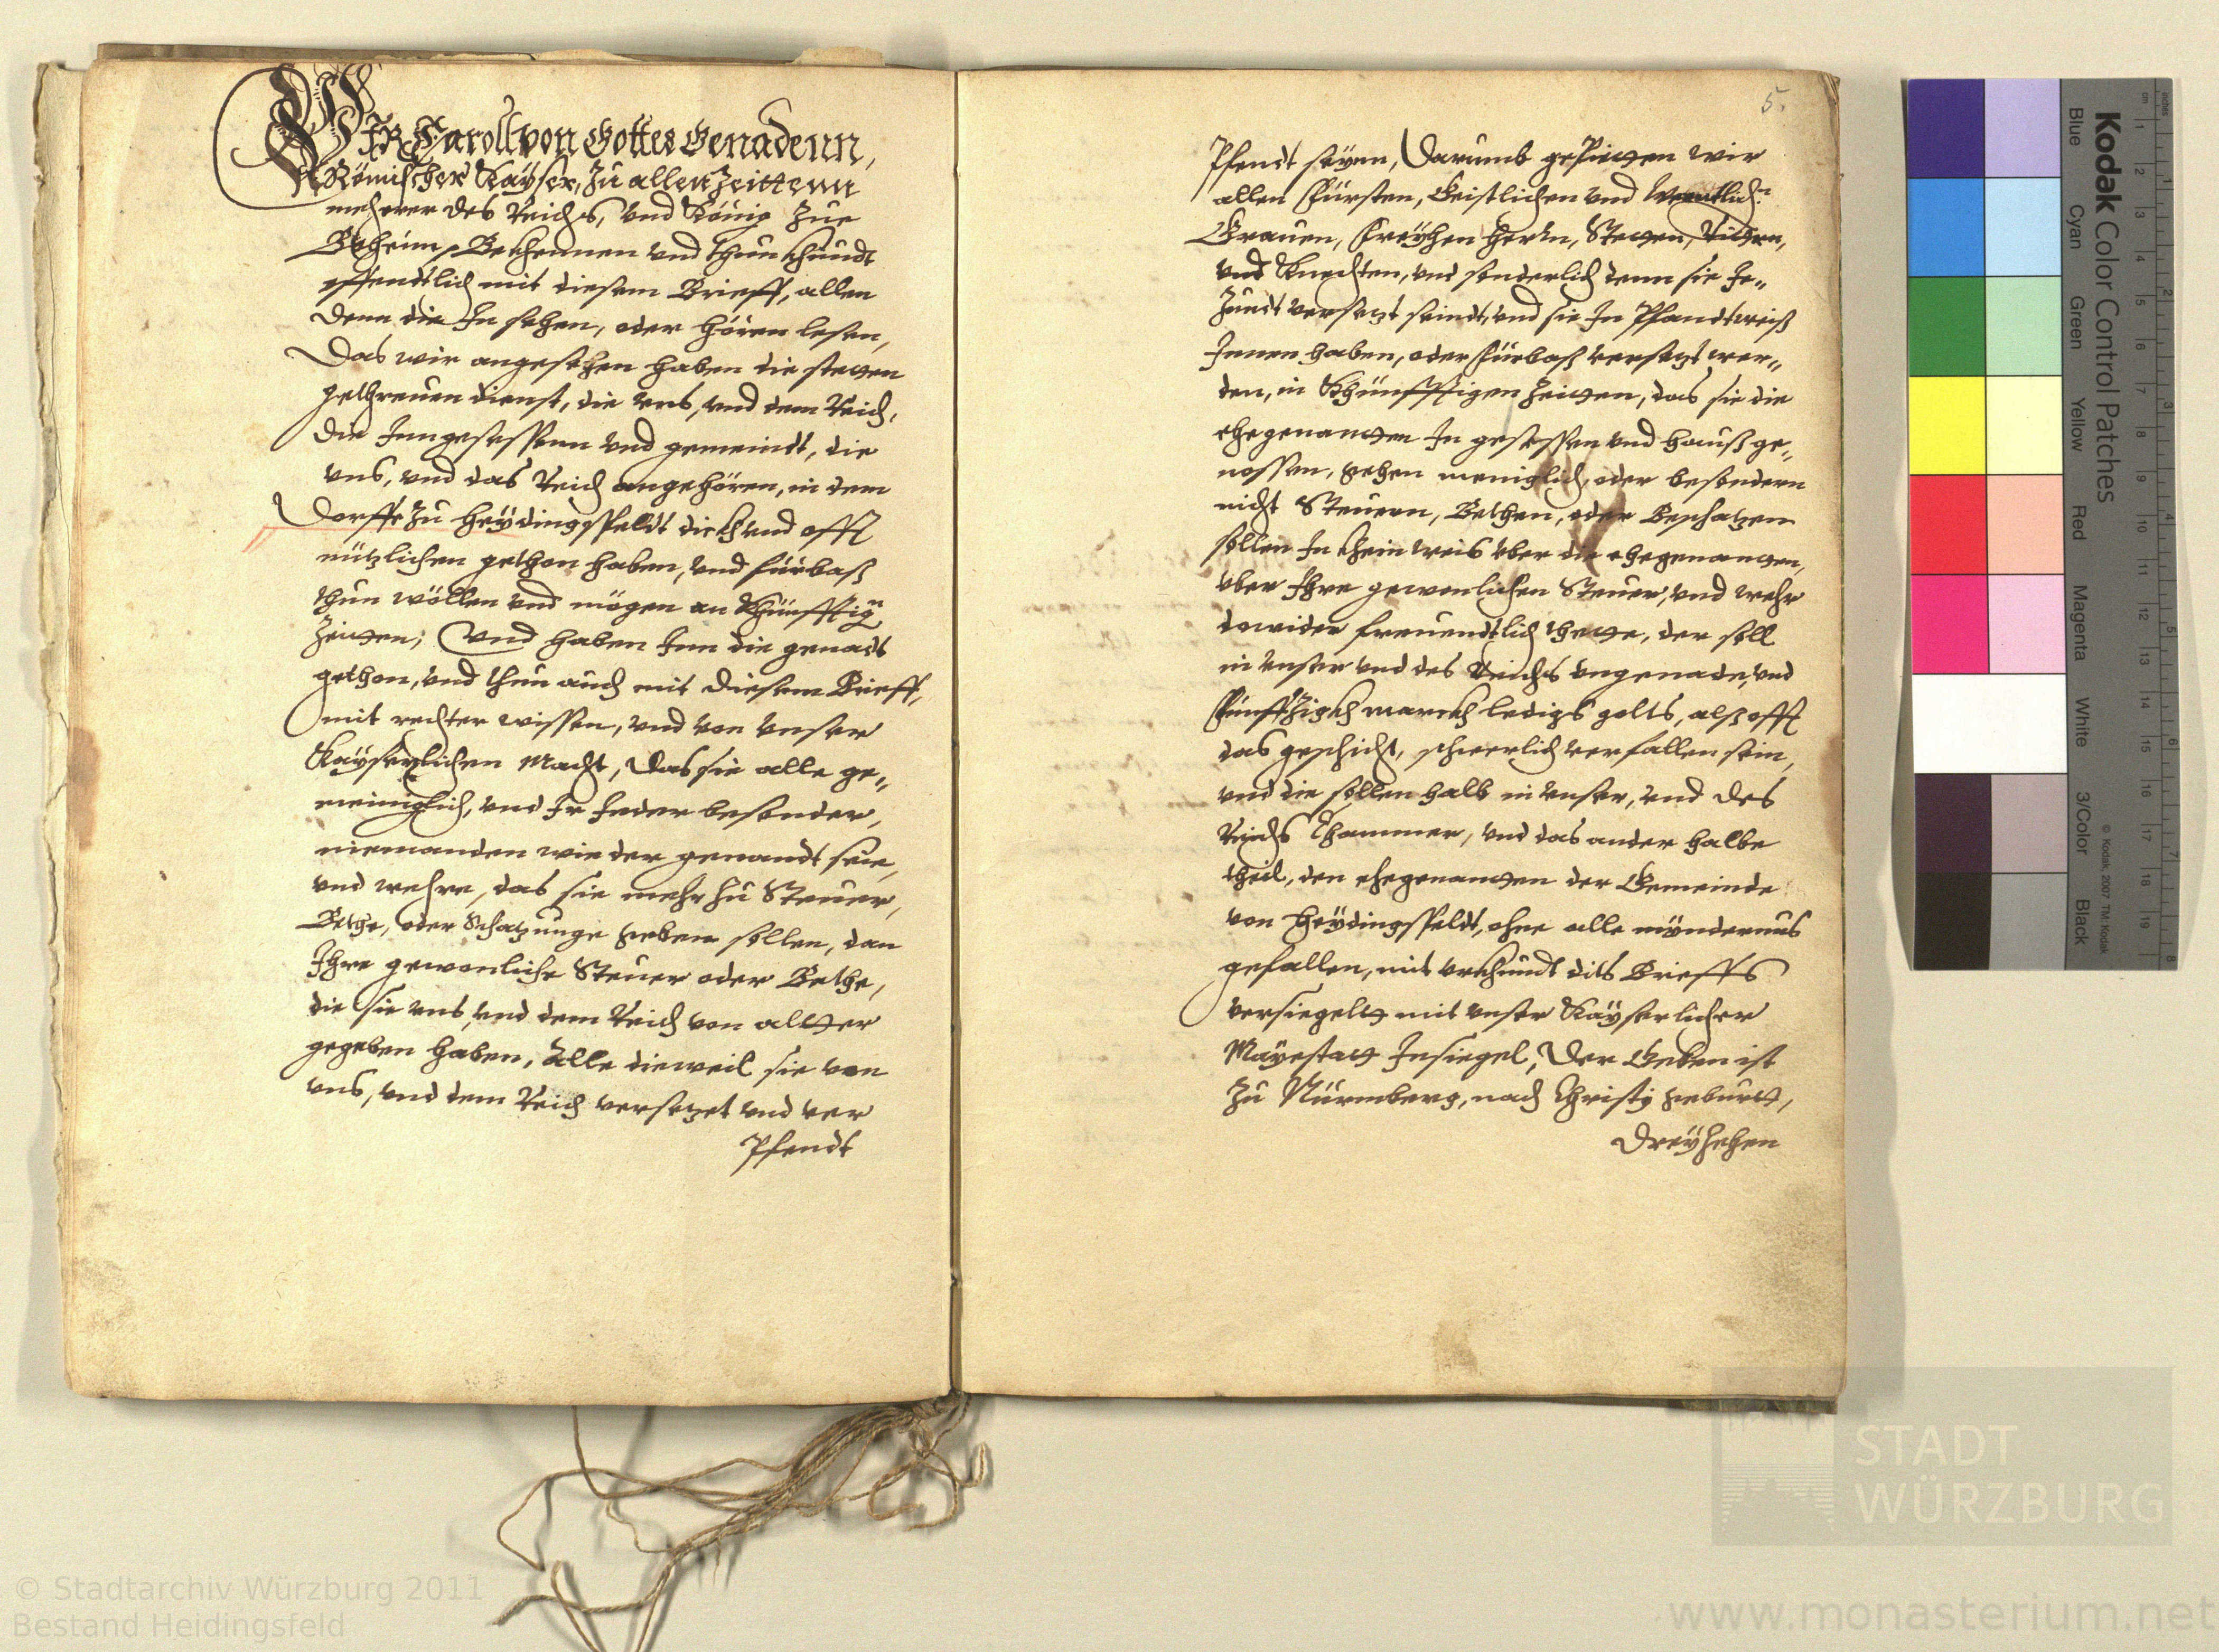 WIR Caroll von Gottes Genadenn,
Römischer Kayser, Zu allen Zeittenn
mehrer des Reichs, Vnd König Zue
Beheim, Bekhennen vnd thun khundt
offendtlich mit diesem Brieff, allen
denn die In sehen, oder hören lesen,
Das wir angesehen haben die stetten
gethreuen dienst, die vns, vnd dem Reich,
die Inngesessenn vnd gemeindt, die
vns, vnd das Reich angehören, in dem
Dorffe Zu Heydingsfeldt dickh vnd offt
nützlichen gethon haben, vnd fürbaß
thun wöllen vnd mögen an Khünfftign
Zeitten; Vnd haben Inn die genadt
gethon, vnd thun auch mit diesem Brieff,
mit rechter wissen, vnd von vnser
Kayserlichen Macht, Das sie alle ge„
meiniglich, vnd Ir Jeder besonder,
niemanden wie der genandt seie,
vnd wehre, das sie mehr zu Steuer,
Bethe, oder Schatzunge geben sollen, dan
Ihre gewonliche Steuer oder Bethe,
die sie vns, vnd dem Reich von altter
gegeben haben, Alle dieweil sie von
vns, vnd dem Reich versetzet vnd ver
Pfendt
5.
Pfendt seynn, Darumb gepietten wir
allen Fürsten, Geistlichen vnd Weltlichn
Grauen, Freyhen Herrn, Stetten, Rittern,
vnd Knechten, vnd sonderlich denn sie Je„
Zundt versetzt seindt, vnd sie In Pfandtweiß
Innen haben, oder fürbaß versetzt wer„
den, in Khünfftigen Zeitten, das sie die
ehegenantten In gesessen vnd haußge„
nossen, gehen meniglich, oder besondern
nicht Steuern, Bethen, oder Beschatzen
sollen In khein weis vber die ehegenantten,
vber Ihre gewonlichen Steuer, vnd wehr
dowider freuendtlich thette, der soll
in vnser vnd des Reichs vngenade, vnd
Fünffzigkh marckh ledigs golts, alß offt
das geschicht, schwerlich verfallen sein,
vnd die sollen halb in vnser, vnd des
Reichs Chammer, vnd das ander halbe
theil, den ehegenantten der Gemeinde
von Heydingsfeldt, ohne alle myndernus
gefallen, mit vrkhundt dits Brieffs
versiegelt mit vnser Kayserlicher
Mayestatt Insiegel, Der Geben ist
Zu Nürmberg, nach Christj geburtt,
Dreyzehen
Kodak Color Control Patches
Blue
Cyan
Green
Yellow
Red
Magenta
White
3/Color
Black
© Kodak, 2007 TM: Kodak
STADT
WÜRZBURG
© Stadtarchiv Würzburg 2011
Bestand Heidingsfeld
www.monasterium.net